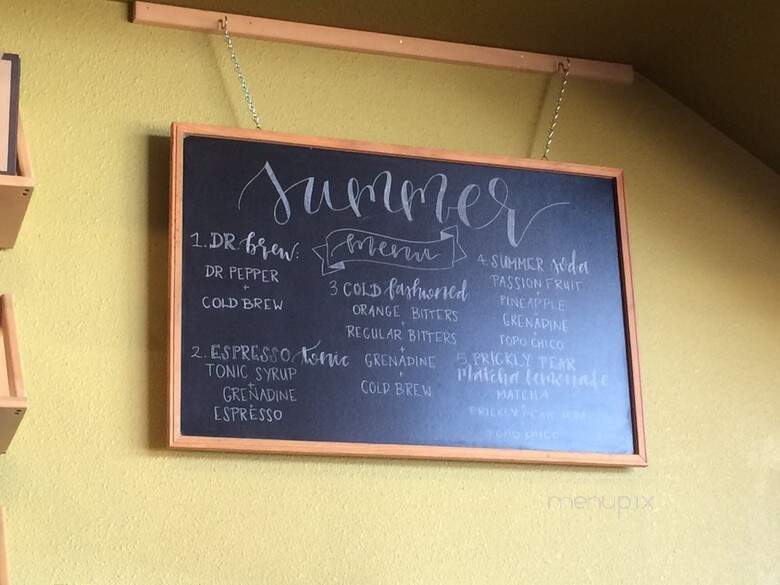 Summer
menu
1. DR brew:
DR PEPPER
+
COLD BREW
2. ESPRESSO tonic
TONIC SYRUP
+
GRENADINE
+
ESPRESSO
3 COLD fashioned
ORANGE BITTERS
+
REGULAR BITTERS
+
GRENADINE
+
COLD BREW
4 SUMMER soda
PASSION FRUIT
PINEAPPLE
GRENADINE
+
TOPO CHICO
5. PRICKLY PEAR
Matcha lemonade
MATCHA
PRICKLY PEAR
TOPO CHICO
menupix